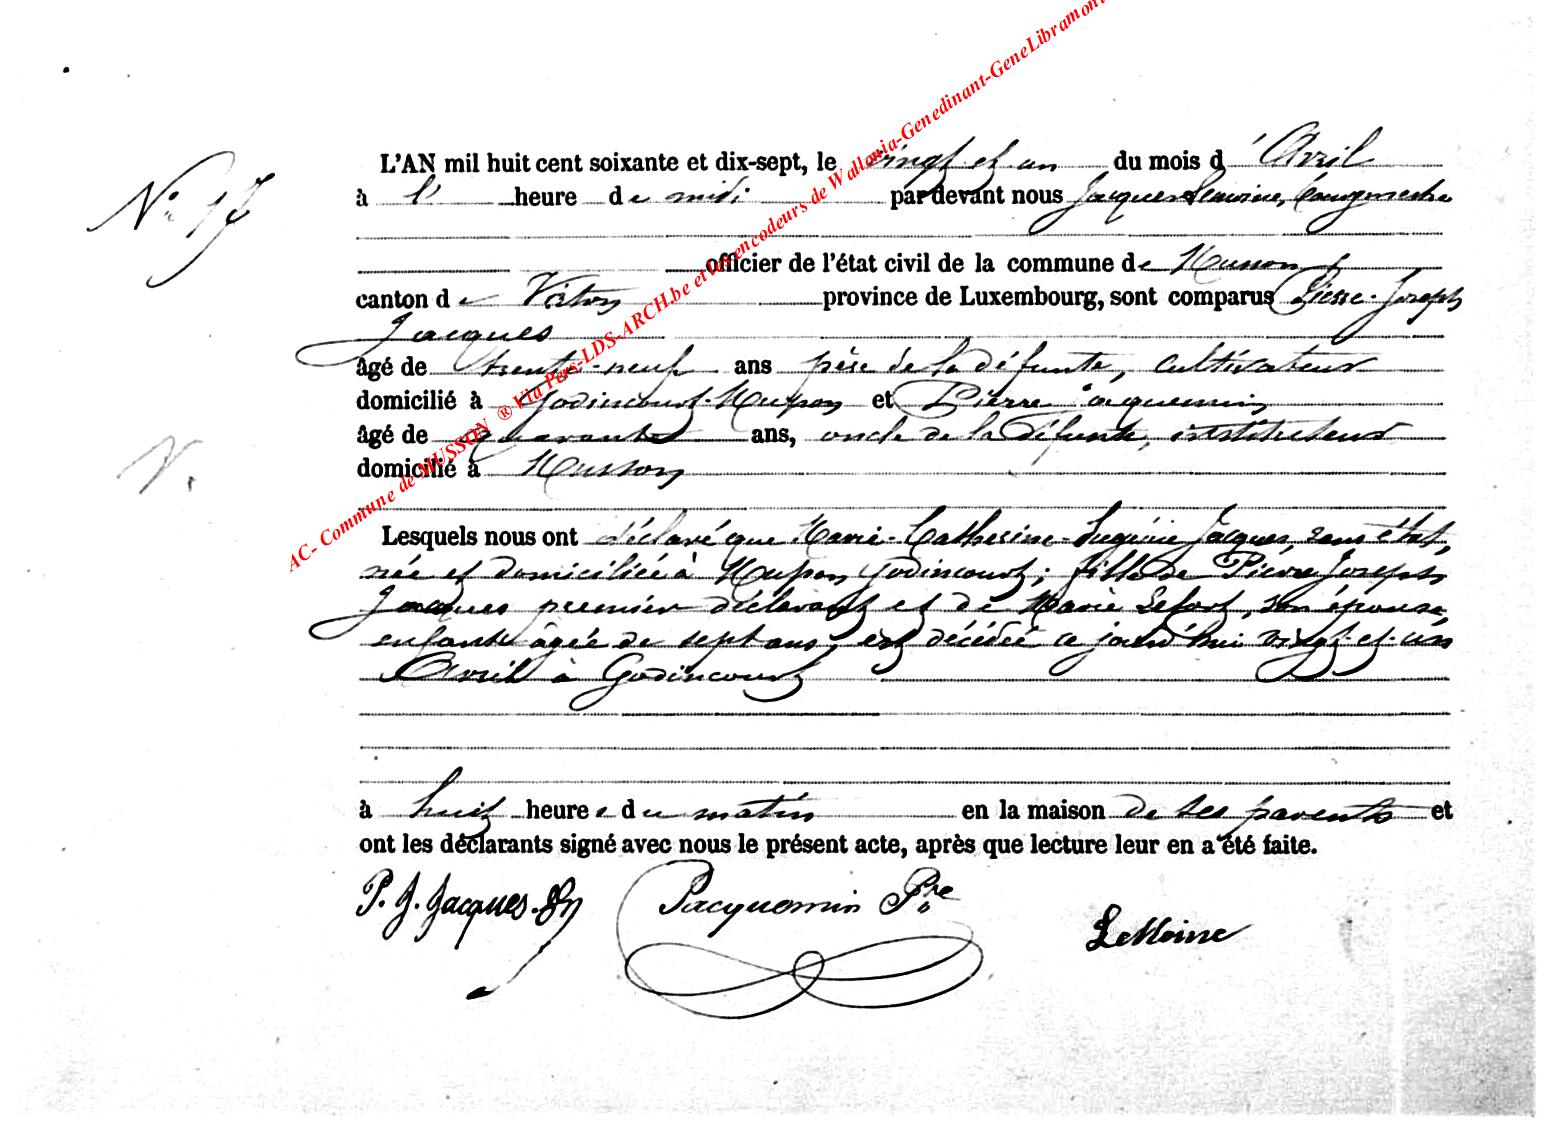 AC- Commune de MUSSON ® Via Pars-LDS-ARCH.be et les encodeurs de Wallonia-Genedinant-GeneLibramont
N° 17
L'AN mil huit cent soixante et dix-sept, le vingt et un du mois d'Avril
à l' heure de midi par devant nous Jacques Lemoine, Bourgmestre
officier de l'état civil de la commune de Musson
canton de Virton province de Luxembourg, sont comparus Pierre-Joseph
Jacques
âgé de trente-neuf ans père de la défunte, cultivateur
domicilié à Godincourt-Musson et Pierre Jacquemin
âgé de quarante ans, oncle de la défunte, instituteur
domicilié à Musson
N.
Lesquels nous ont déclaré que Marie-Catherine-Eugénie Jacques, sans état,
née et domiciliée à Musson Godincourt; fille de Pierre Joseph
Jacques premier déclarant et de Marie Lefort, son épouse,
enfant âgée de sept ans, est décédée ce jourd'hui vingt-et-un
Avril à Godincourt
à huit heures du matin en la maison de ses parents et
ont les déclarants signé avec nous le présent acte, après que lecture leur en a été faite.
P. J. Jacques. Jacquemin Pre
LeMoine